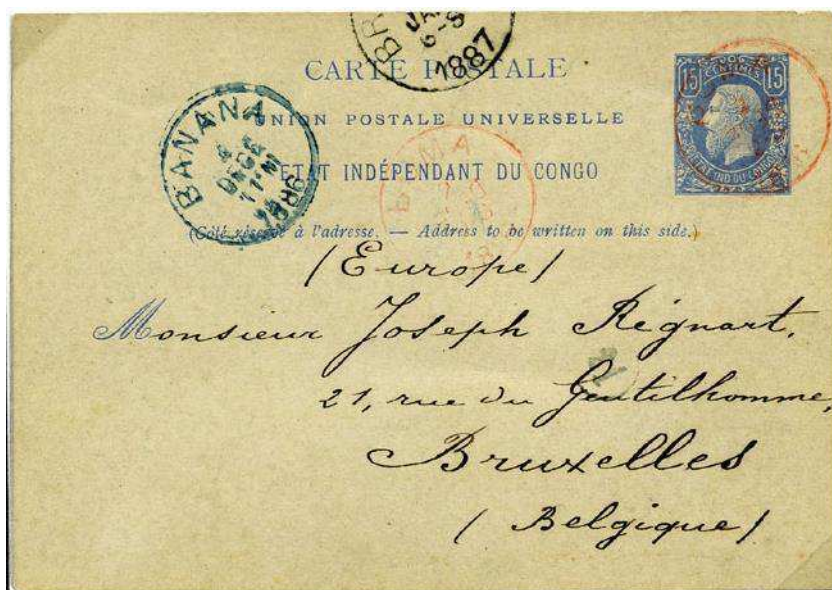 CARTE POSTALE
UNION POSTALE UNIVERSELLE
ETAT INDÉPENDANT DU CONGO
(Côté réservé à l'adresse. — Address to be written on this side.)
15 CENTIMES 15
ETAT IND. DU CONGO
1887
BANANA
4
DECE
1886
BOMA
(Europe)
Monsieur Joseph Régnart,
21, rue du Gentilhomme,
Bruxelles
(Belgique)